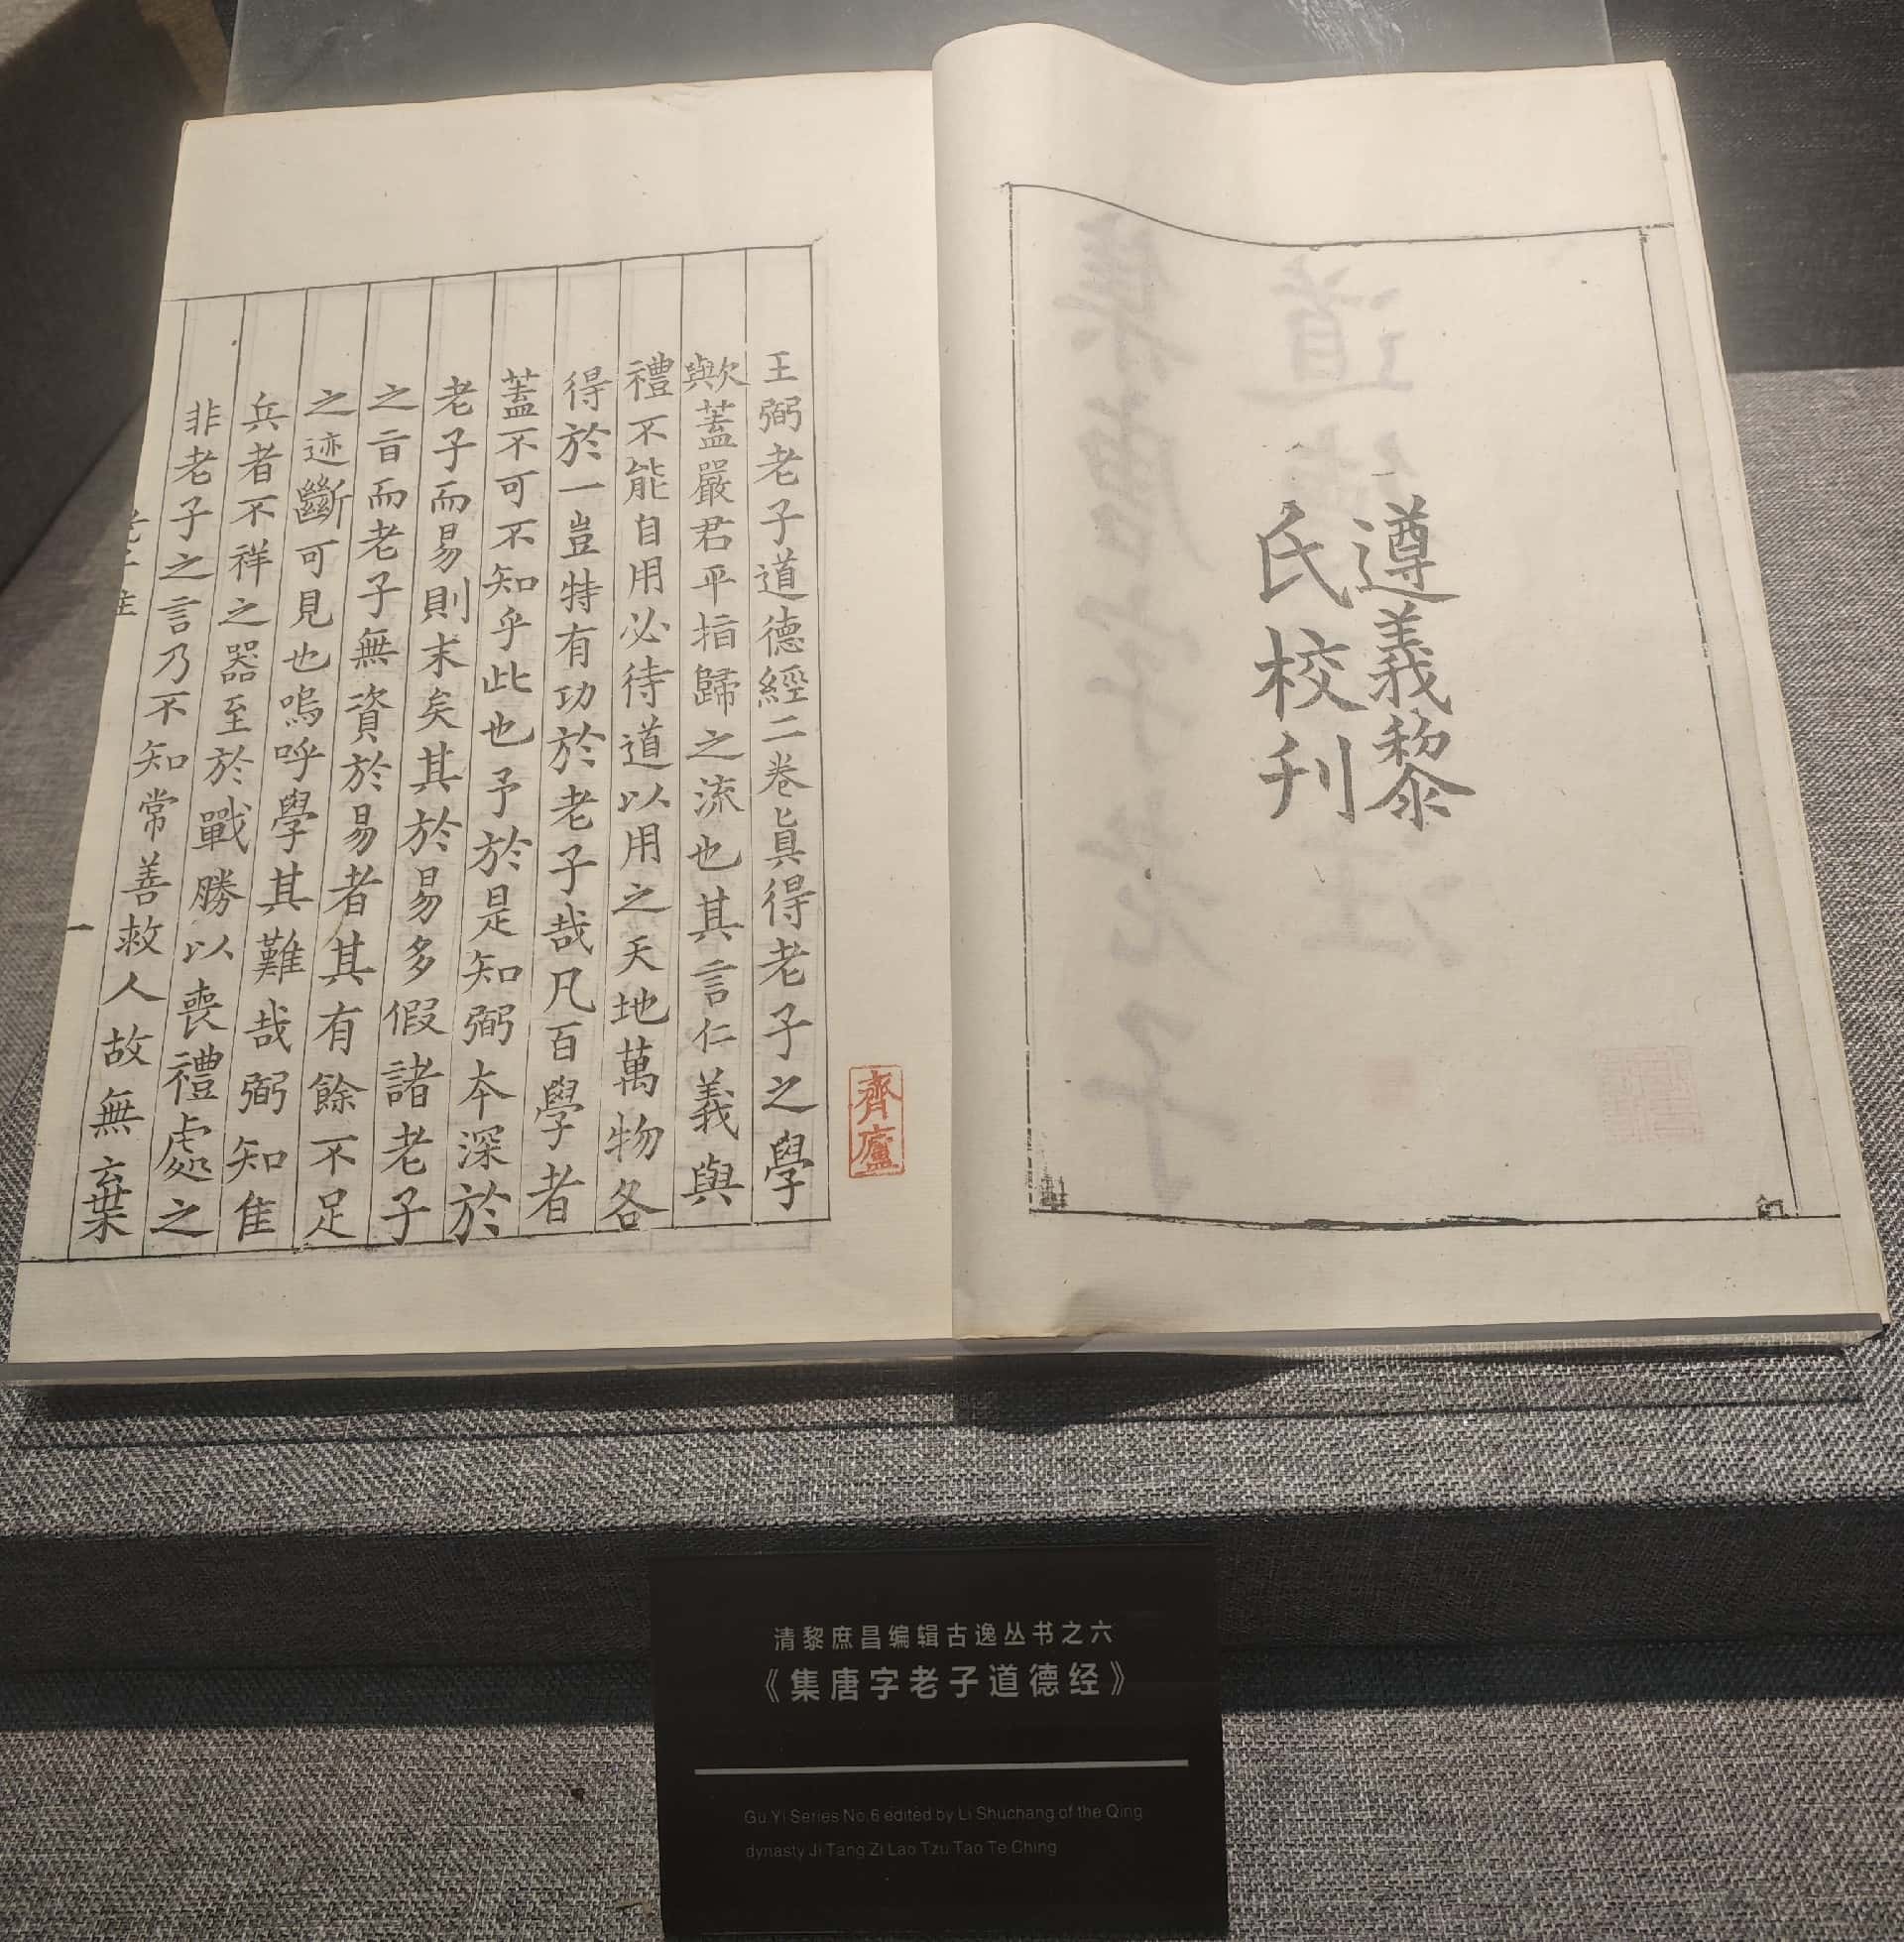 遵義黎
氏校刊
齊廬
王弼老子道德經二卷眞得老子之學
歟蓋嚴君平指歸之流也其言仁義與
禮不能自用必待道以用之天地萬物各
得於一豈特有功於老子哉凡百學者
蓋不可不知乎此也予於是知弼本深於
老子而易則末矣其於易多假諸老子
之旨而老子無資於易者其有餘不足
之迹斷可見也嗚呼學其難哉弼知佳
兵者不祥之器至於戰勝以喪禮處之
非老子之言乃不知常善救人故無棄
一
清黎庶昌编辑古逸丛书之六
《集唐字老子道德经》
Gu Yi Series No.6 edited by Li Shuchang of the Qing
dynasty Ji Tang Zi Lao Tzu Tao Te Ching